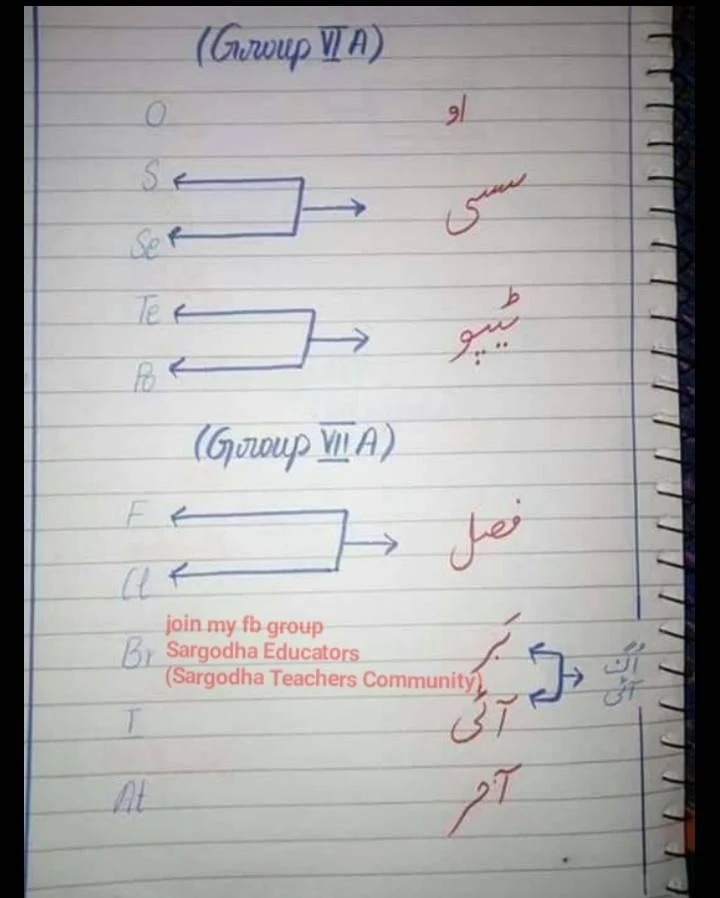 (Group VI A)
O او
S
Se سسی
Te
Po ٹیپو
(Group VII A)
F
Cl فصل
join my fb group
Br Sargodha Educators بَر
(Sargodha Teachers Community)
I آئی
آئی
At آخر